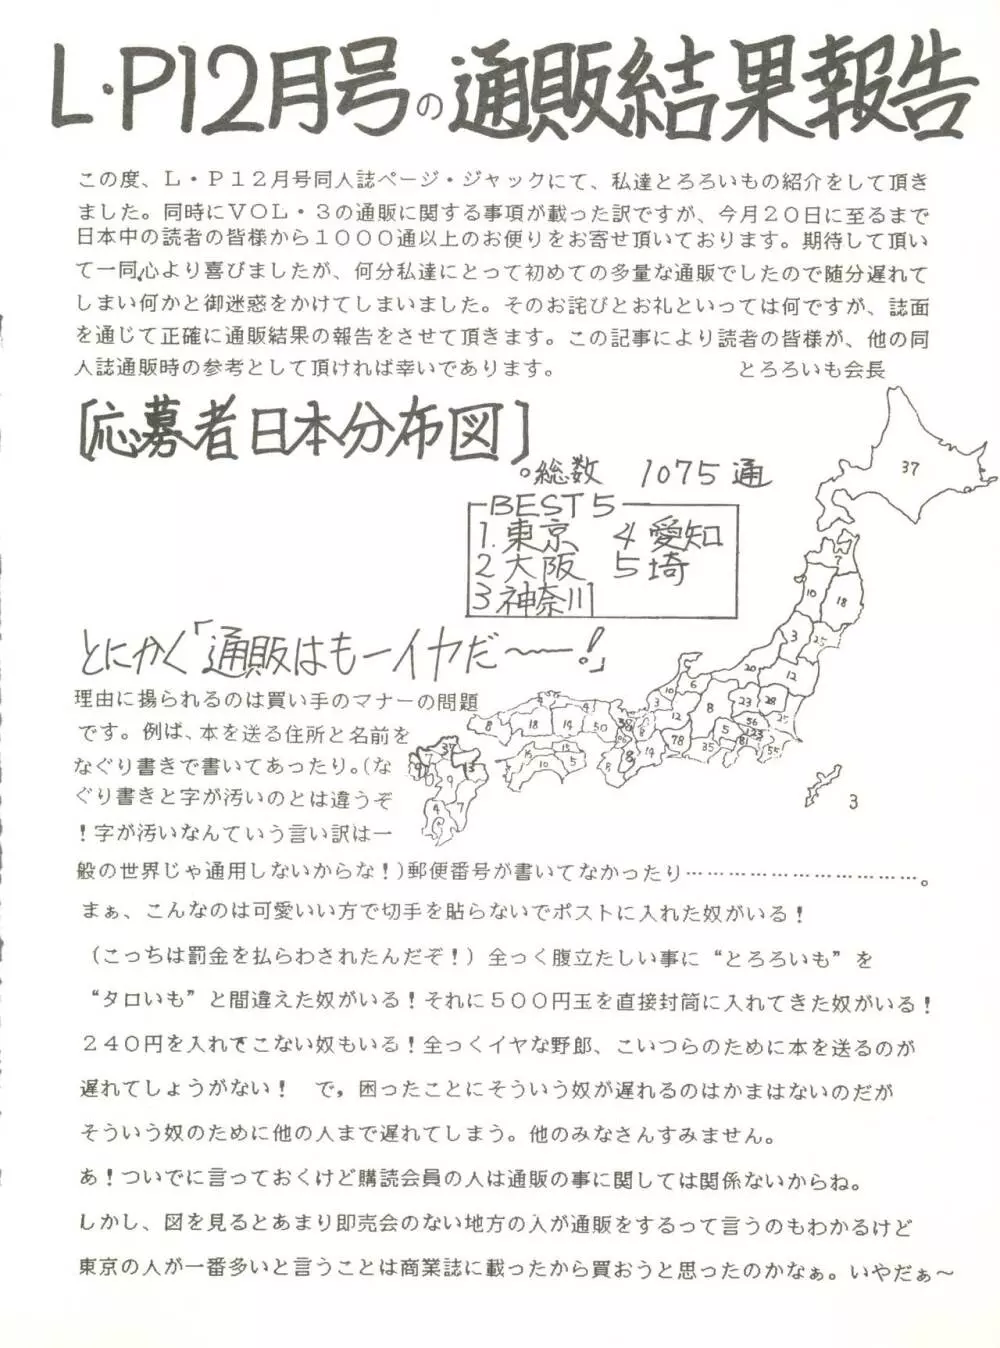 L・P12月号の通販結果報告
この度、L・P12月号同人誌ページ・ジャックにて、私達とろろいもの紹介をして頂き
ました。同時にVOL・3の通販に関する事項が載った訳ですが、今月20日に至るまで
日本中の読者の皆様から1000通以上のお便りをお寄せ頂いております。期待して頂い
て一同心より喜びましたが、何分私達にとって初めての多量な通販でしたので随分遅れて
しまい何かと御迷惑をかけてしまいました。そのお詫びとお礼といっては何ですが、誌面
を通じて正確に通販結果の報告をさせて頂きます。この記事により読者の皆様が、他の同
人誌通販時の参考として頂ければ幸いであります。 とろろいも会長
[応募者日本分布図]
。総数 1075通
BEST5
1.東京 4愛知
2大阪 5埼
3神奈川
37
7
10
18
3
25
20
12
6
10
3
8
23
28
56
25
123
5
81
55
12
78
35
14
8
18
14
50
8
8
15
5
37
7
13
9
4
7
6
3
とにかく「通販はもーイヤだ〜!」
理由に揚られるのは買い手のマナーの問題
です。例ば、本を送る住所と名前を
なぐり書きで書いてあったり。(な
ぐり書きと字が汚いのとは違うぞ
!字が汚いなんていう言い訳は一
般の世界じゃ通用しないからな!)郵便番号が書いてなかったり…………………………。
まぁ、こんなのは可愛いい方で切手を貼らないでポストに入れた奴がいる!
(こっちは罰金を払らわされたんだぞ!)全っく腹立たしい事に“とろろいも”を
“タロいも”と間違えた奴がいる!それに500円玉を直接封筒に入れてきた奴がいる!
240円を入れてこない奴もいる!全っくイヤな野郎、こいつらのために本を送るのが
遅れてしょうがない! で,困ったことにそういう奴が遅れるのはかまはないのだが
そういう奴のために他の人まで遅れてしまう。他のみなさんすみません。
あ!ついでに言っておくけど購読会員の人は通販の事に関しては関係ないからね。
しかし、図を見るとあまり即売会のない地方の人が通販をするって言うのもわかるけど
東京の人が一番多いと言うことは商業誌に載ったから買おうと思ったのかなぁ。いやだぁ〜